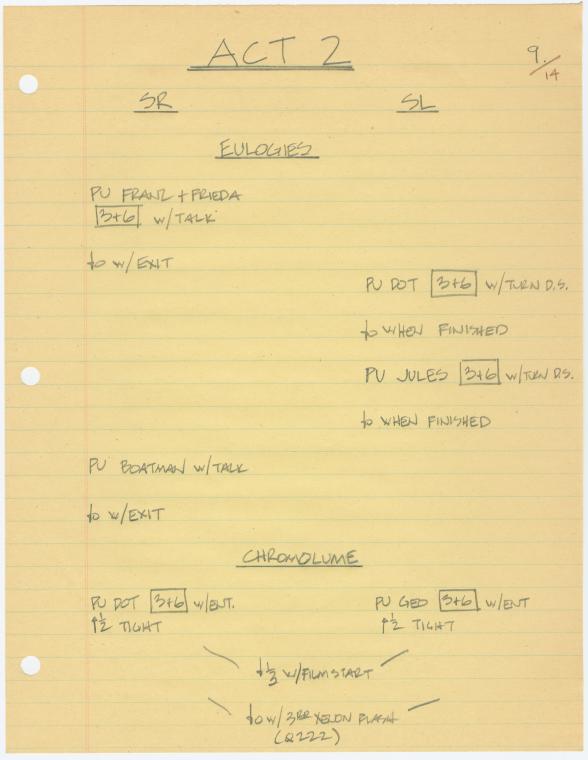 ACT 2
9./14
SR
SL
EULOGIES
PU FRANZ + FRIEDA
3+6 w/TALK
↓o w/EXIT
PU DOT 3+6 w/TURN D.S.
↓o WHEN FINISHED
PU JULES 3+6 w/TURN D.S.
↓o WHEN FINISHED
PU BOATMAN w/TALK
↓o w/EXIT
CHROMOLUME
PU DOT 3+6 w/ENT.
↑½ TIGHT
PU GEO 3+6 w/ENT
↑½ TIGHT
w/FILM START
↓o w/3RD XENON FLASH
(Q222)